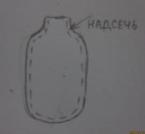 НАДСЕЧЬ